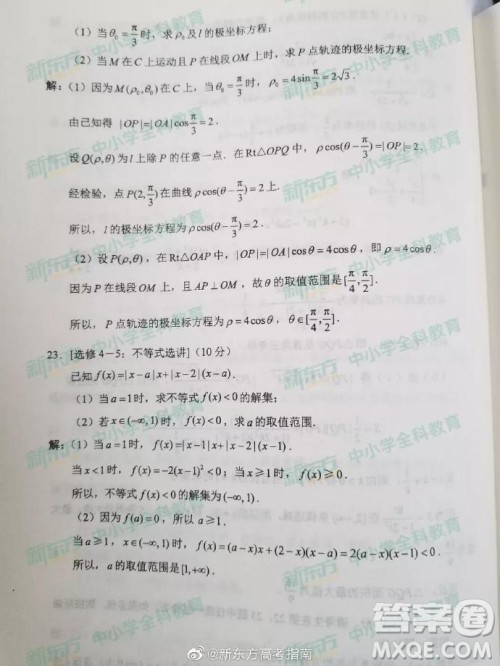 (1) 当θ₀=π/3时，求ρ₀及l的极坐标方程；
(2) 当M在C上运动且P在线段OM上时，求P点轨迹的极坐标方程.
解：(1) 因为M(ρ₀,θ₀)在C上，当θ₀=π/3时，ρ₀=4sin π/3=2√3.
由已知得 |OP|=|OA|cos π/3=2.
设Q(ρ,θ)为l上除P的任意一点，在Rt△OPQ中，ρcos(θ-π/3)=2.
经检验，点P(2,π/3)在曲线ρcos(θ-π/3)=2上.
所以，l的极坐标方程为ρcos(θ-π/3)=2.
(2) 设P(ρ,θ)，在Rt△OAP中，|OP|=|OA|cosθ=4cosθ，即ρ=4cosθ.
因为P在线段OM上，且AP⊥OM，故θ的取值范围是[π/4,π/2].
所以，P点轨迹的极坐标方程为ρ=4cosθ，θ∈[π/4,π/2].
23. [选修4-5：不等式选讲] (10分)
已知f(x)=|x-a|x+|x-2|(x-a).
(1) 当a=1时，求不等式f(x)<0的解集；
(2) 若x∈(-∞,1)时，f(x)<0，求a的取值范围.
解：(1) 当a=1时，f(x)=|x-1|x+|x-2|(x-1).
当x<1时，f(x)=-2(x-1)²<0；当x≥1时，f(x)≥0.
所以，不等式f(x)<0的解集为(-∞,1).
(2) 因为f(a)=0，所以a≥1.
当a≥1，x∈(-∞,1)时，f(x)=(a-x)x+(2-x)(x-a)=2(a-x)(x-1)<0.
所以，a的取值范围是[1,+∞).
@新东方高考指南
答案圈
MXQE.COM